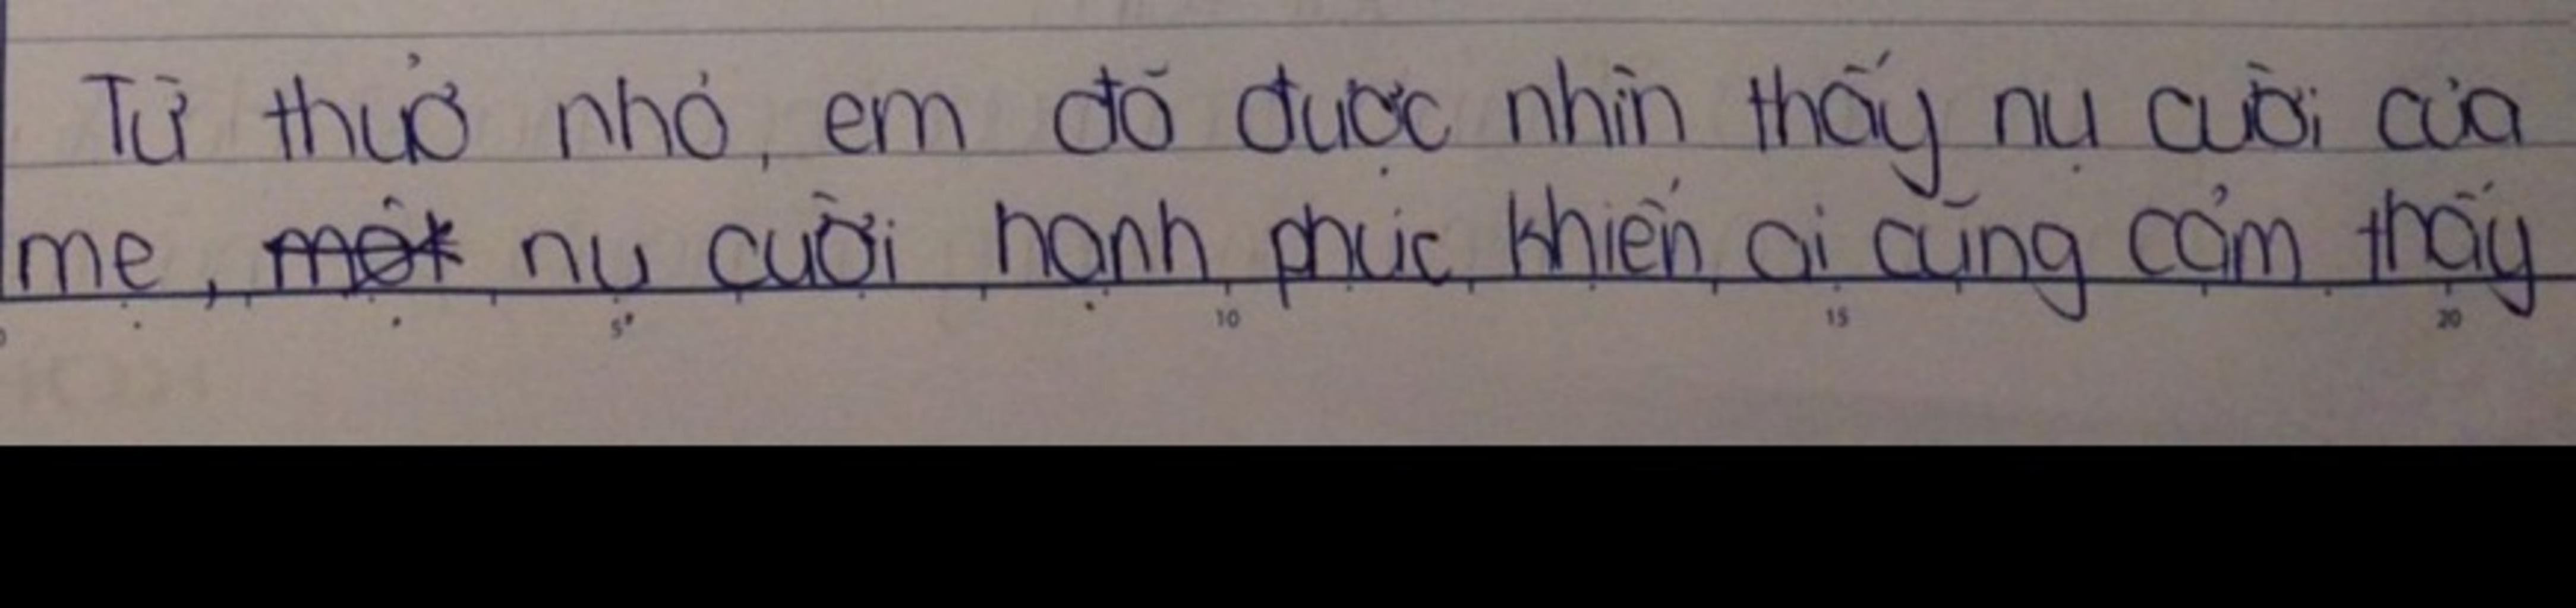 Từ thuở nhỏ, em đã được nhìn thấy nụ cười của
mẹ, một nụ cười hạnh phúc khiến ai cũng cảm thấy
0 5 10 15 20